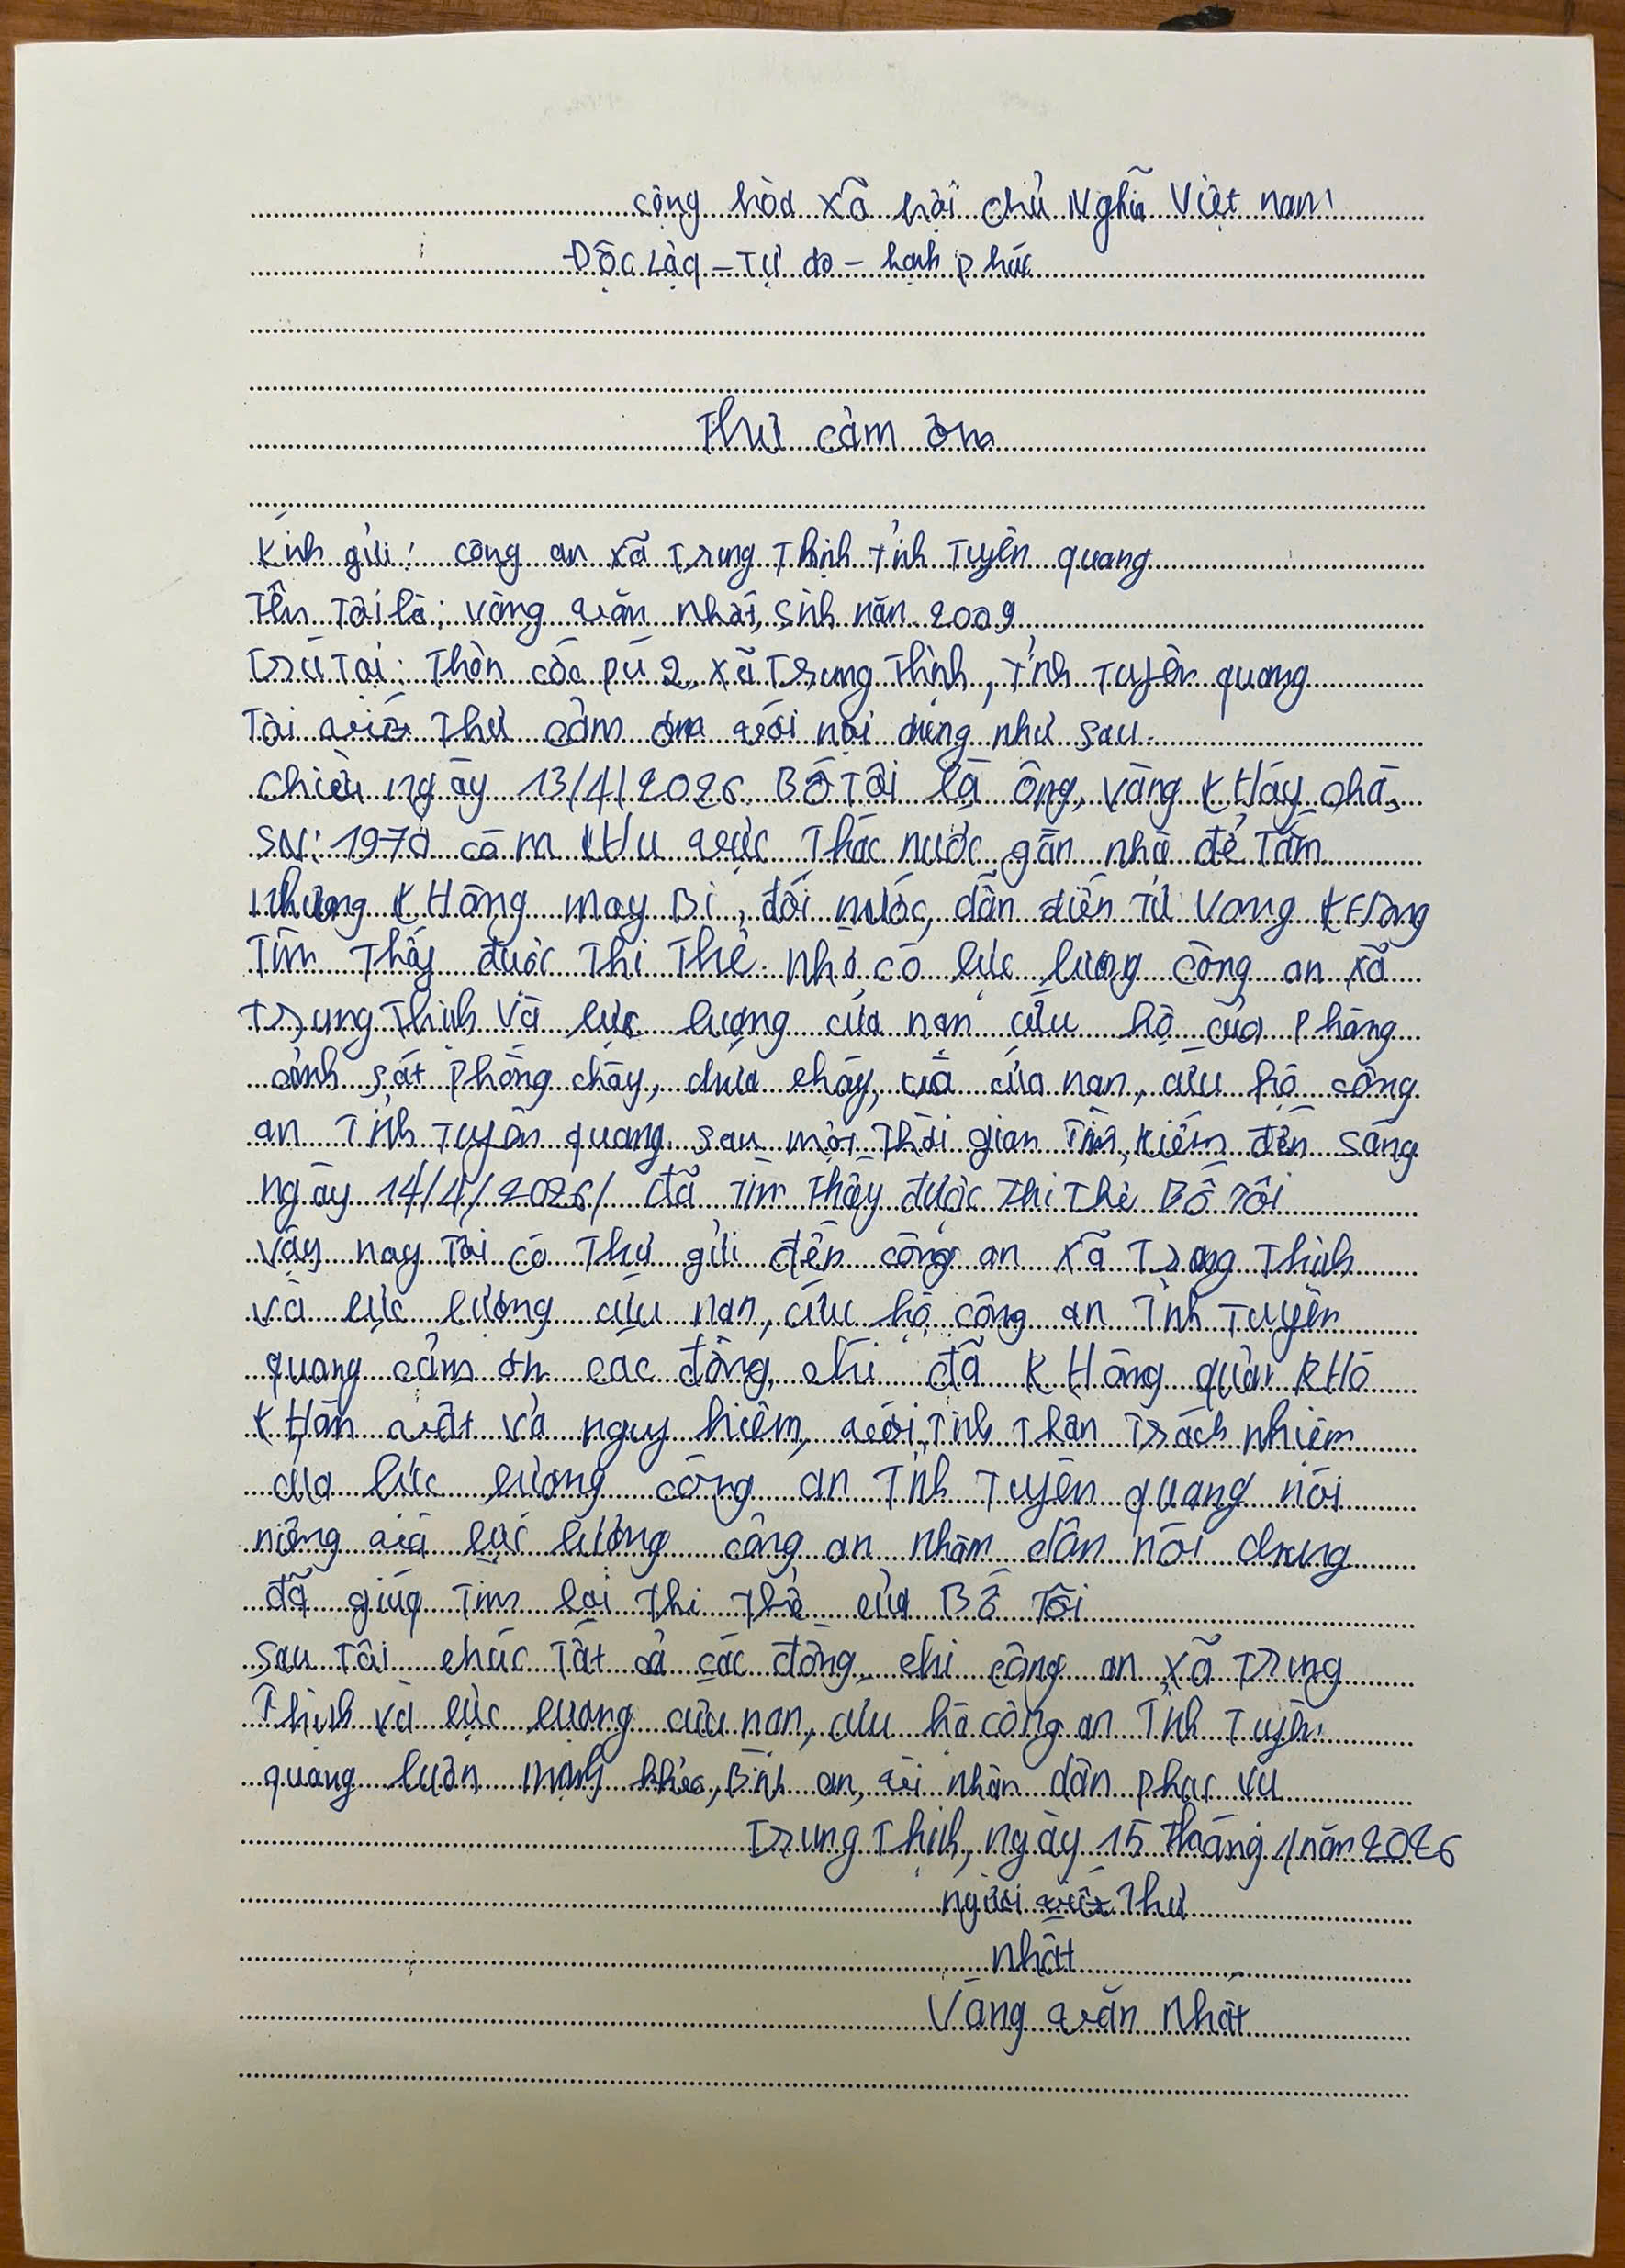 cộng hòa xã hội chủ Nghĩa Việt nam
Độc Lập – Tự do – hạnh phúc
Thư cảm ơn
Kính gửi: công an xã Trung Thịnh tỉnh Tuyên quang
Tên Tôi là; vàng văn nhất, sinh năm 2009
Trú Tại: Thôn cốc pú 2, xã Trung Thịnh, tỉnh Tuyên quang
Tôi viết Thư cảm ơn với nội dung như sau.
chiều ngày 13/4/2026 Bố Tôi là ông, vàng kháy
SN: 1970 khu vực Thác nước gần nhà để Tắm
Nhưng không may Bị, đối nước, dẫn điến Tử Vong không
Tìm Thấy được Thi Thể. nhờ có lực lượng công an xã
Trung Thịnh và lực lượng cứu nạn cứu hộ của phòng
cảnh sát phòng cháy, chữa cháy, và cứu nạn, cứu hộ công
an Tỉnh Tuyên quang. sau một Thời gian Tìm, kiếm đến sáng
ngày 14/4/2026/ đã Tìm Thấy được Thi Thể Bố Tôi
vậy nay Tôi có Thư gửi đến công an xã Trung Thịnh
và lực lượng cứu nạn, cứu hộ công an Tỉnh Tuyên
quang cảm ơn các đồng, chí đã không quản khó
khăn vất vả nguy hiểm, với, Tinh Thần Trách nhiệm
của lực lượng công an Tỉnh Tuyên quang nói
riêng và lực lượng công an nhân dân nói chung
đã giúp Tìm lại Thi Thể của Bố Tôi
sau Tôi chúc Tất cả các đồng, chí công an xã Trung
Thịnh và lực lượng cứu nạn, cứu hộ công an Tỉnh Tuyên
quang luôn mạnh khỏe, Bình an, nhân dân phục vụ
Trung Thịnh, ngày 15 Tháng 4 năm 2026
người viết Thư
nhất
Vàng văn Nhất